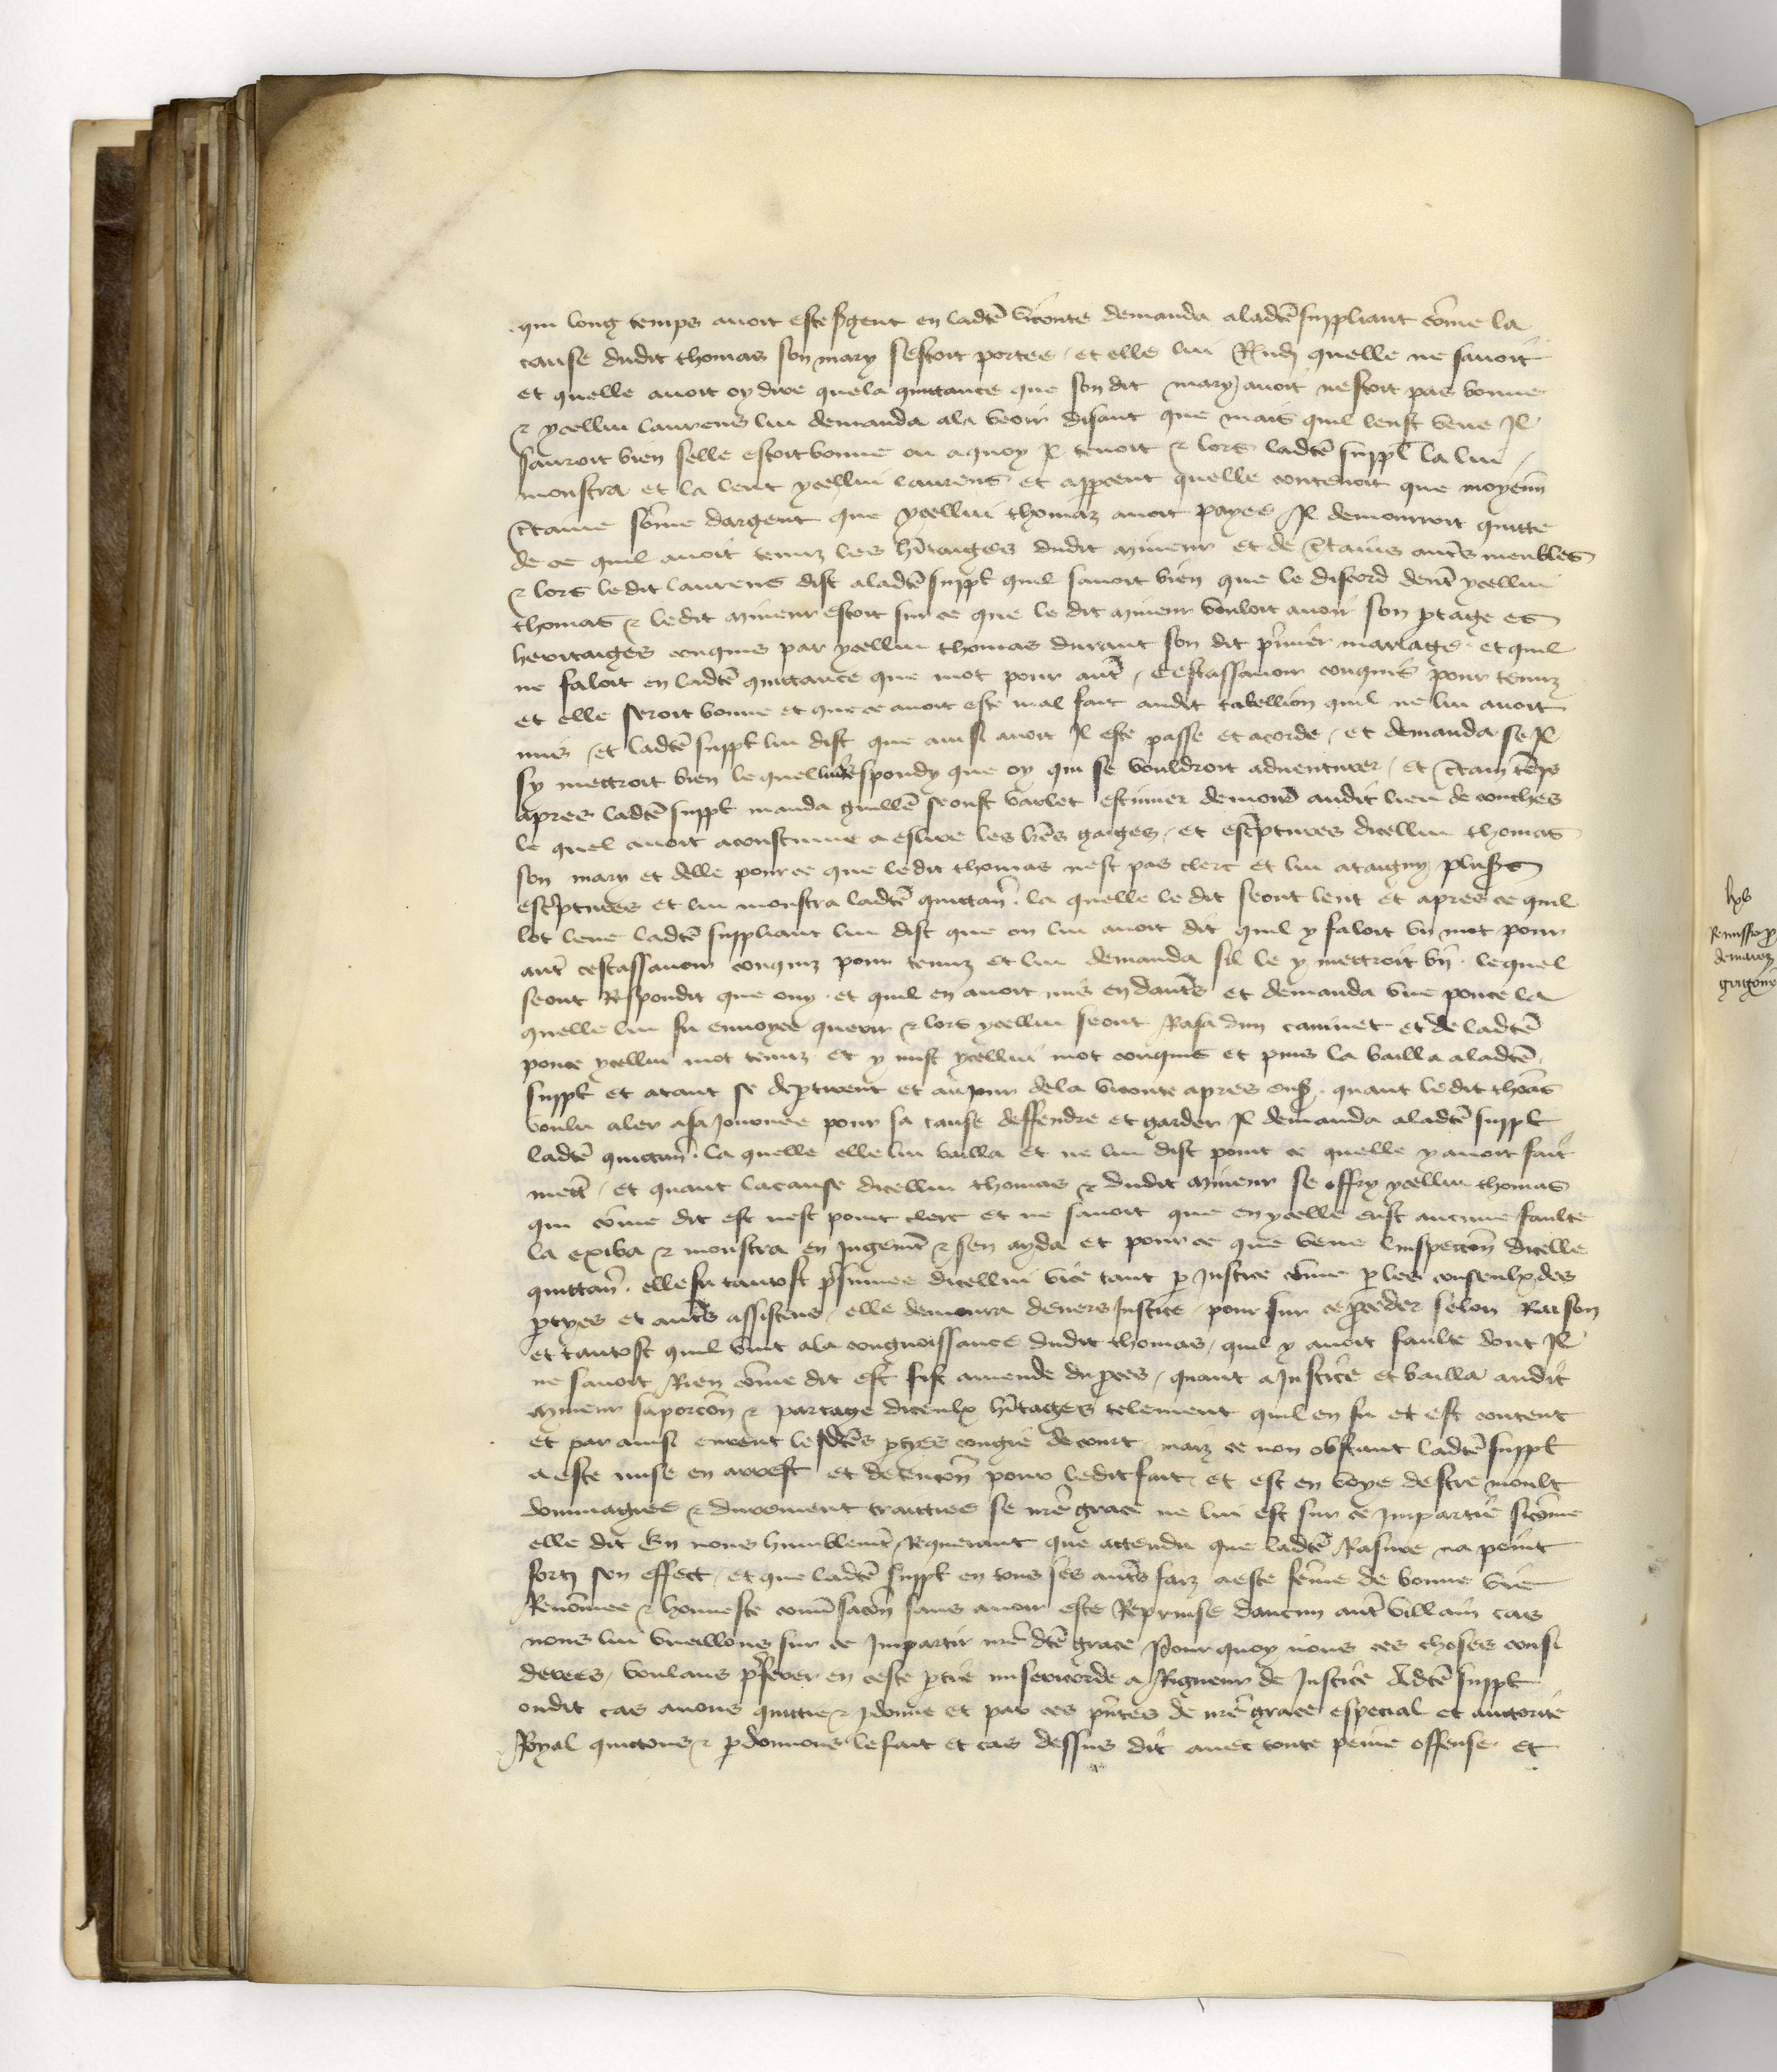 qui long temps avoit esté sgent en ladte viconté demanda a ladte suppliant cōme la
cause dudit thomas son mary sestoit portee / et elle lui Rndi quelle ne savoit
et quelle avoit oy dire que la quittance que son dit mary avoit nestoit pas bonne
& ycellui laurens lui demanda a la veoir disant que mais quil leust veue Il
sauroit bien selle estoit bonne ou a quoy Il tenoit & lors ladte suppl la lui
monstra et la leut ycellui laurens et appceut quelle contenoit que moyenn
ctaine sōme dargent que ycellui thomas avoit payee Il demourroit quitte
de ce quil avoit tenuz les hitaiges dudit mineur et de ctains autˢ meubles
& lors ledit laurens dist a ladte suppl quil savoit bien que le discord dent ycellui
thomas & ledit mineur estoit sur ce que le dit mineur vouloit avoir son ptage es
heritaiges conquis par ycellui thomas durant son dit pmier mariage et quil
ne faloit en ladte quittance que mot pour aut / Cestassavoir conquis pour tenuz
et elle seroit bonne et que ce avoit esté mal fait audit tabellion quil ne lui avoit
mis / et ladte suppl lui dist que ainsi avoit Il esté passé et acordé / et demanda se Il
sy mettroit bien le quel lui Respondy que oy qui se vouldroit adventurer / et ctain teps
apres ladte suppl manda guille seont varlet estimier demour audit lieu de conches
le quel avoit acoustumé a eslire les lres gaiges / et escptures dicellui thomas
son mary et delle pour ce que ledit thomas nest pas clerc et lui ataigny plusrs
escptures et lui monstra ladte quittan . la quelle le dit seont leut et apres ce quil
lot leue ladte suppliant lui dist que on lui avoit dit quil y faloit un mot pour
aut cestassavoir conquiz pour tenuz et lui demanda sil le y mettroit bn . lequel
seont Respondit que ouy . et quil en avoit mis en dautˢ et demanda une ponce la
quelle lui fu envoyee querir & lors ycellui seont Rasa dun canivet et de ladte
ponce ycellui mot tenuz et y mist ycellui mot conquis et puis la bailla a ladte
suppl et atant se deptirent et au jour de la viconté apres ens . quant ledit thoas
voulu aler a sa journee pour sa cause deffendre et garder Il demanda a ladte suppl
ladte quittan . la quelle elle lui bailla et ne lui dist point ce quelle y avoit fait
mett / et quant la cause dicellui thomas & dudit mineur se offry ycellui thomas
qui cōme dit est nest point clerc et ne savoit que en ycelle eust aucune faulte
la exiba & monstra en Jugemt & sen ayda et pour ce que veue linspeccon dicelle
quittan . elle fu tantost psumee dicellui vice tant p Justice cōme p les conseulx des
ptyes et autˢ assistens / elle demoura devers Justice / pour sur ce pceder selon Raison
et tantost quil vint a la congnoissance dudit thomas / quil y avoit faulte dont Il
ne savoit Rien cōme dit est fist amende du pces / quant a Justice et bailla audit
mineur sa porcon & partage diceulx hitages telement quil en fu et est content
et par ainsi eurent lesdtes ptyes congié de court maiz ce non obstant ladte suppl
a esté mise en arrest et detencon pour ledit fait et est en voye destre moult
dommagiee & durement traittiee se nre grace ne lui est sur ce Impartie sicōme
elle dit En nous humblemt Requerant que attendu que ladte Rasure na point
sorty son effect / et que ladte suppl en tous ses autˢ faiz a esté fēme de bonne vie
Renōmee & honneste convsacon sans avoir esté Reprinse daucun aut villain cas
nous lui vueillons sur ce Impartir nre dte grace Pour quoy nous ces choses consi
derees / voulans pferer en ceste ptie misericorde a Rigueur de Justice A ladte suppl
ou dit cas avons quittié & pdonné et par ces pntes de nre grace especial et auctorité
Royal quittons & pdonnons le fait et cas dessus dit avec toute peine offense et
lxv
Remissio p